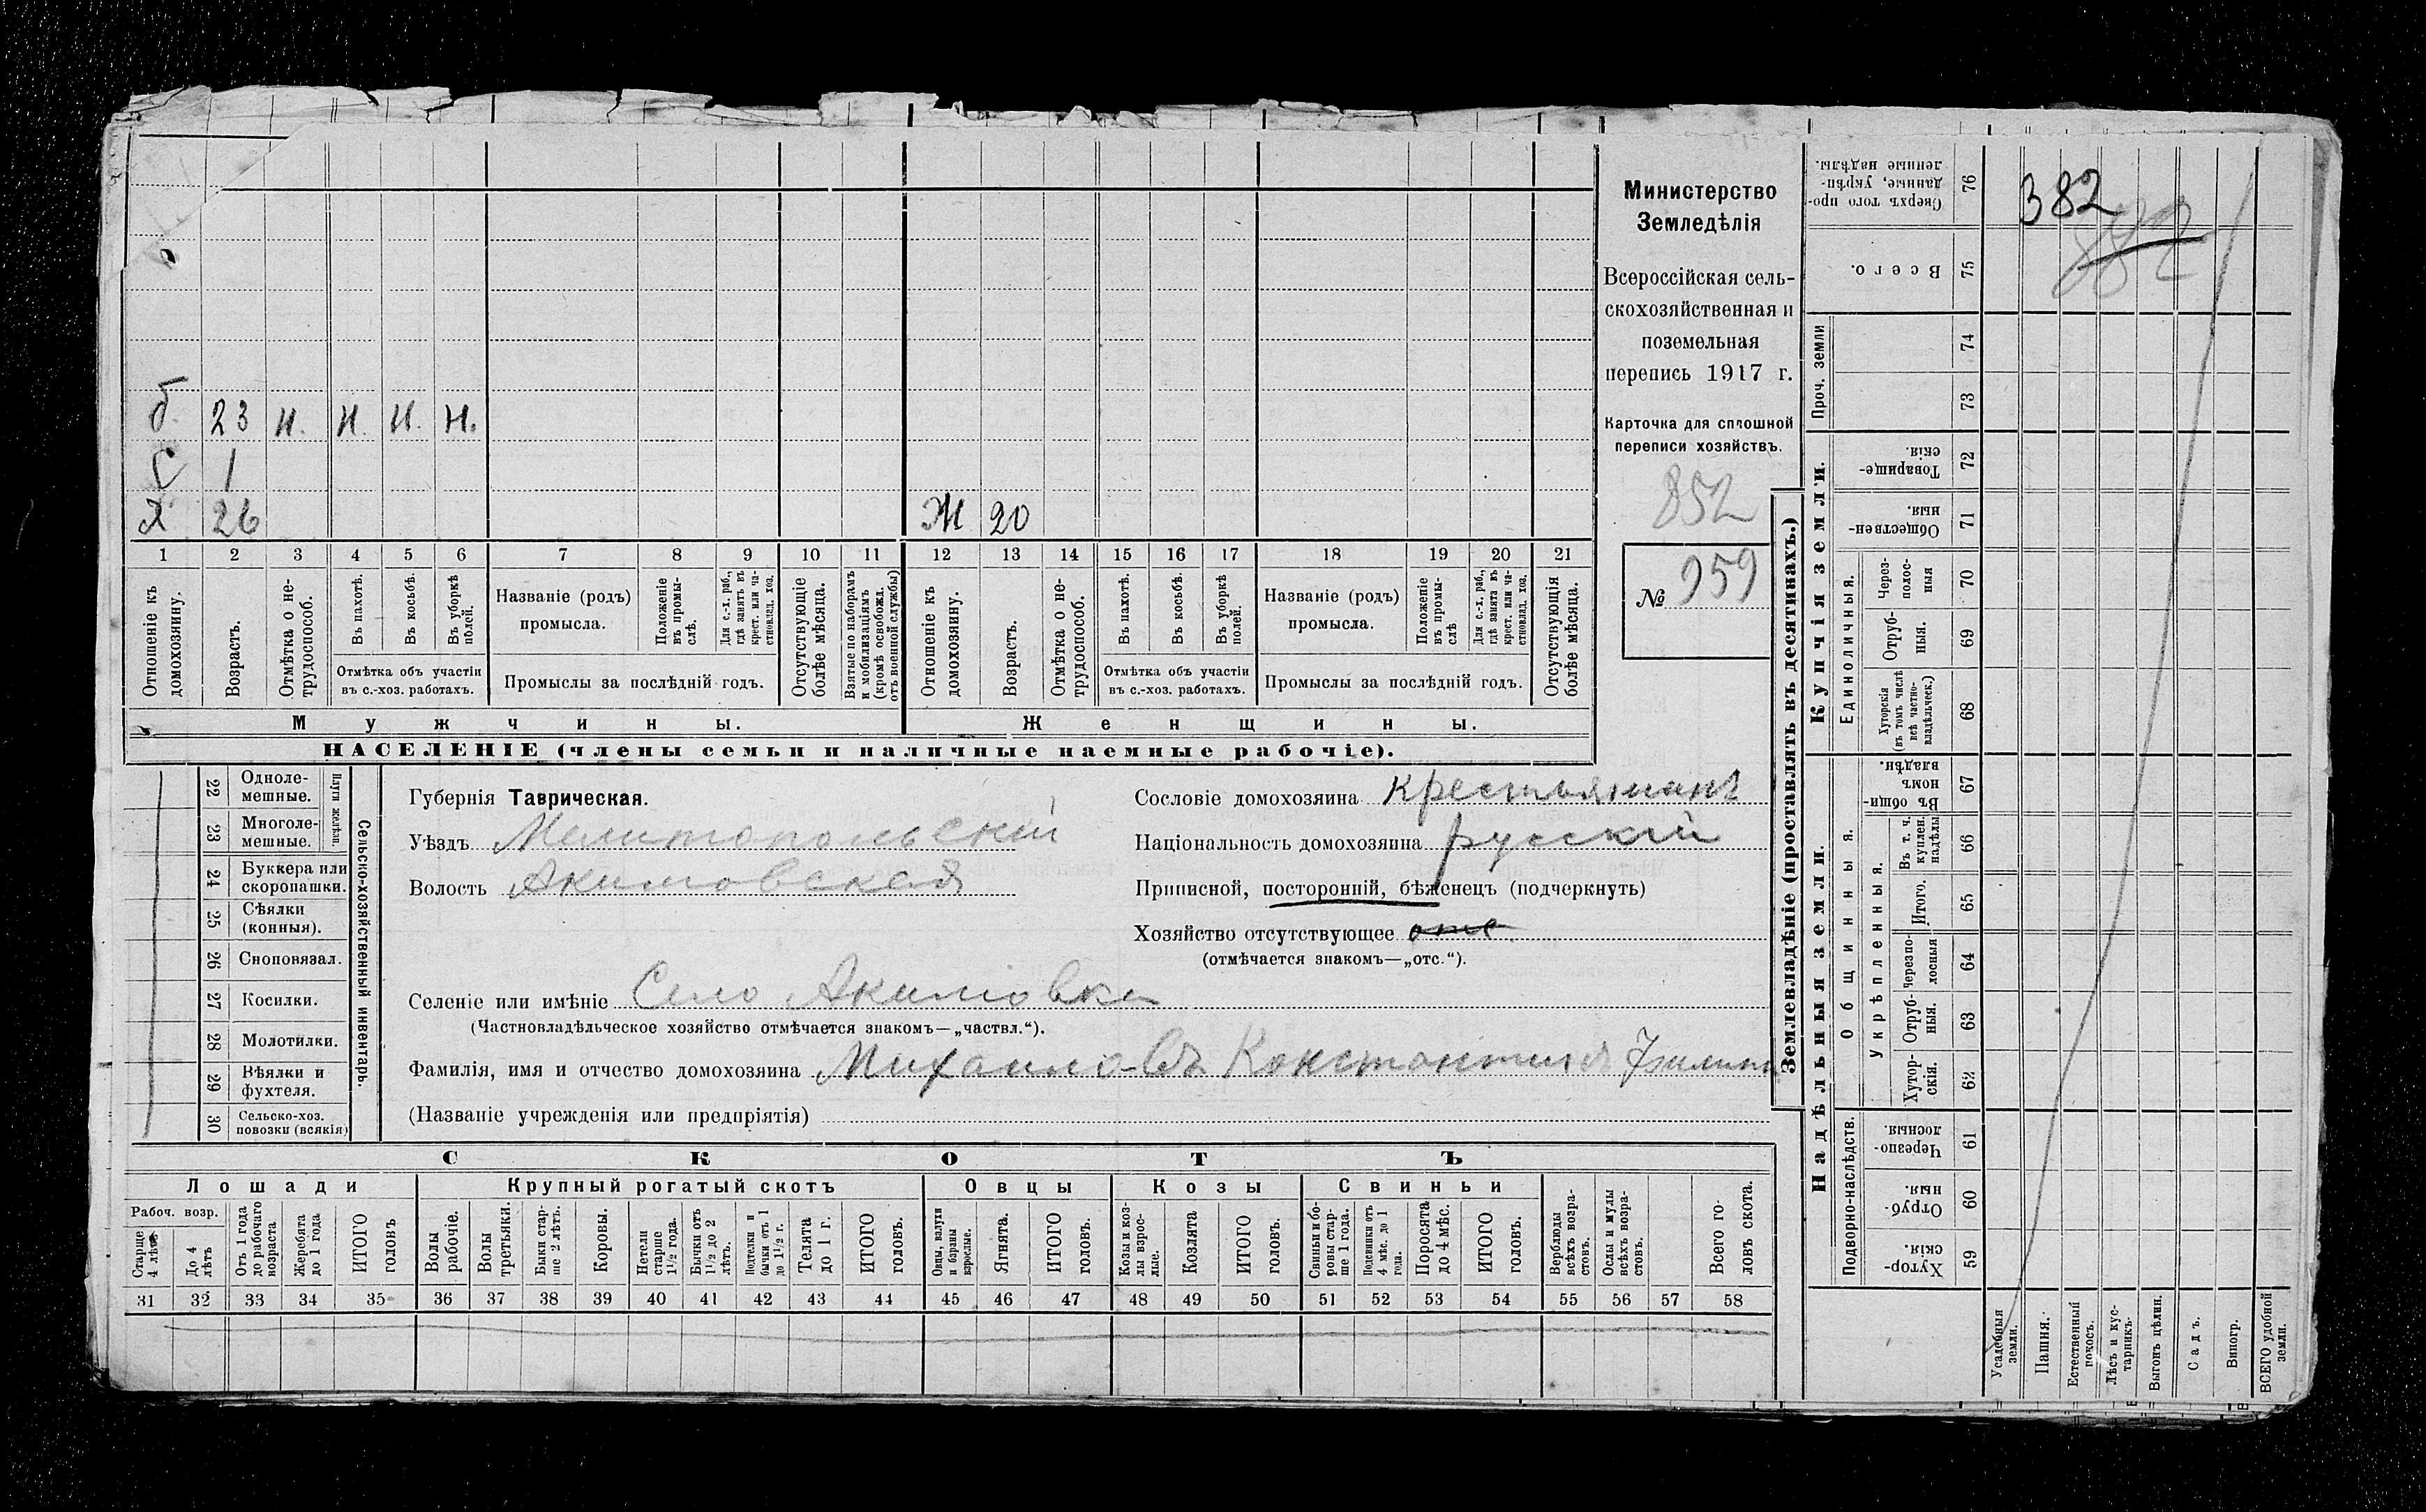 б. 23 н. н. н. н.
С 1
Х 26 Ж 20
1 2 3 4 5 6 7 8 9 10 11 12 13 14 15 16 17 18 19 20 21
Отношеніе къ домохозяину.
Возрастъ.
Отмѣтка о не-трудоспособ.
Въ пахотѣ.
Въ косьбѣ.
Въ уборкѣ полей.
Отмѣтка объ участіи
въ с.-хоз. работахъ.
Названіе (родъ)
промысла.
Положеніе въ промы-слѣ.
Для с.-х. раб., гдѣ занятъ въ крест. или ча-стновлад. хоз.
Промыслы за послѣдній годъ.
Отсутствующіе болѣе мѣсяца.
Взятые по наборамъ и мобилизаціямъ (кромѣ освобожд. отъ военной службы)
Отношеніе къ домохозяину.
Возрастъ.
Отмѣтка о не-трудоспособ.
Въ пахотѣ.
Въ косьбѣ.
Въ уборкѣ полей.
Отмѣтка объ участіи
въ с.-хоз. работахъ.
Названіе (родъ)
промысла.
Положеніе въ промы-слѣ
Для с.-х. раб., гдѣ занята въ крест. или ча-стновлад. хоз.
Промыслы за послѣдній годъ.
Отсутствующія болѣе мѣсяца.
Мужчины. Женщины.
НАСЕЛЕНІЕ (члены семьи и наличные наемные рабочіе).
Министерство
Земледѣлія
Всероссійская сель-
скохозяйственная и
поземельная
перепись 1917 г.
Карточка для сплошной
переписи хозяйствъ.
852
№ 959
22 Одноле-мешные.
23 Многоле-мешные.
Плуги желѣзн.
24 Буккера или скоропашки.
25 Сѣялки (конныя).
26 Сноповязал.
27 Косилки.
28 Молотилки.
29 Вѣялки и фухтеля.
30 Сельско-хоз. повозки (всякія)
Сельско-хозяйственный инвентарь.
Губернія Таврическая.
Уѣздъ Мелитопольскій
Волость Акимовская
Сословіе домохозяина крестьянинъ
Національность домохозяина русскій
Приписной, посторонній, бѣженецъ (подчеркнуть)
Хозяйство отсутствующее отс.
(отмѣчается знакомъ—„отс.“).
Селеніе или имѣніе Село Акимовка
(Частновладѣльческое хозяйство отмѣчается знакомъ—„частвл.“).
Фамилія, имя и отчество домохозяина Михаило-въ Константинъ Филипп
(Названіе учрежденія или предпріятія)
СКОТЪ
Лошади Крупный рогатый скотъ Овцы Козы Свиньи
Рабоч. возр.
Старше 4 лѣтъ
До 4 лѣтъ
Отъ 1 года до рабочаго возраста
Жеребята до 1 года
ИТОГО головъ
Волы рабочіе.
Волы третьяки.
Быки стар-ше 2 лѣтъ.
Коровы.
Нетели старше 1½ года.
Бычки отъ 1½ до 2 лѣтъ.
Подтелки и бычки отъ 1 до 1½ г.
Телята до 1 г.
ИТОГО головъ.
Овцы, валухи и бараны взрослые.
Ягнята.
ИТОГО головъ.
Козы и коз-лы взрос-лые.
Козлята
ИТОГО головъ.
Свиньи и бо-ровы стар-ше 1 года.
Подсвинки отъ 4 мѣс. до 1 года.
Поросята до 4 мѣс.
ИТОГО головъ.
Верблюды всѣхъ возра-стовъ.
Ослы и мулы всѣхъ возра-стовъ.
Всего го-ловъ скота.
31 32 33 34 35 36 37 38 39 40 41 42 43 44 45 46 47 48 49 50 51 52 53 54 55 56 57 58
Землевладѣніе (проставлять въ десятинахъ.)
382
882
Сверхъ того про-данные, укрѣп-ленные надѣлы. 76
Всего. 75
Проч. земли
74
73
Купчія земли.
Товарище-скія. 72
Обществен-ныя. 71
Единоличныя.
Через-полос-ныя 70
Отруб-ныя. 69
Хуторскія (въ томъ числѣ всѣ частно-владѣльческ.) 68
Надѣльныя земли.
Общинныя.
Въ общин-номъ владѣн. 67
Укрѣпленныя.
Въ т. ч. куплен. надѣлы 66
Итого. 65
Черезпо-лосныя 64
Отруб-ныя. 63
Хутор-скія. 62
Подворно-наслѣдств.
Черезпо-лосныя 61
Отруб-ныя. 60
Хутор-скія. 59
Усадебныя земли.
Пашня.
Естественный покосъ.
Лѣсъ и кус-тарникъ.
Выгонъ цѣлин.
Садъ.
Виногр.
ВСЕГО удобной земли.